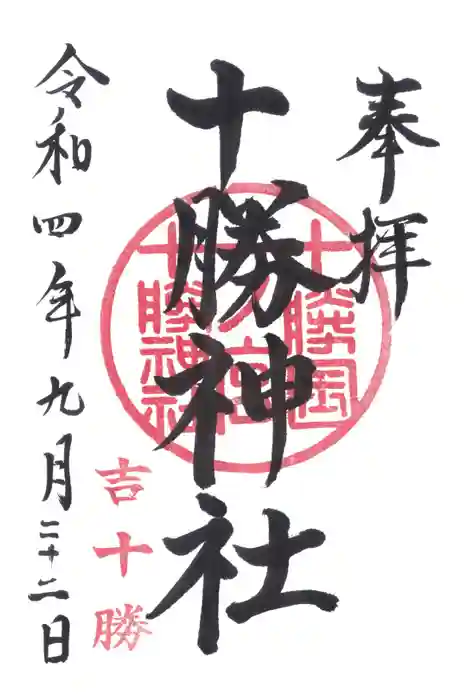 奉拝
十勝神社
十勝国
十勝神社
吉十勝
令和四年九月二十二日